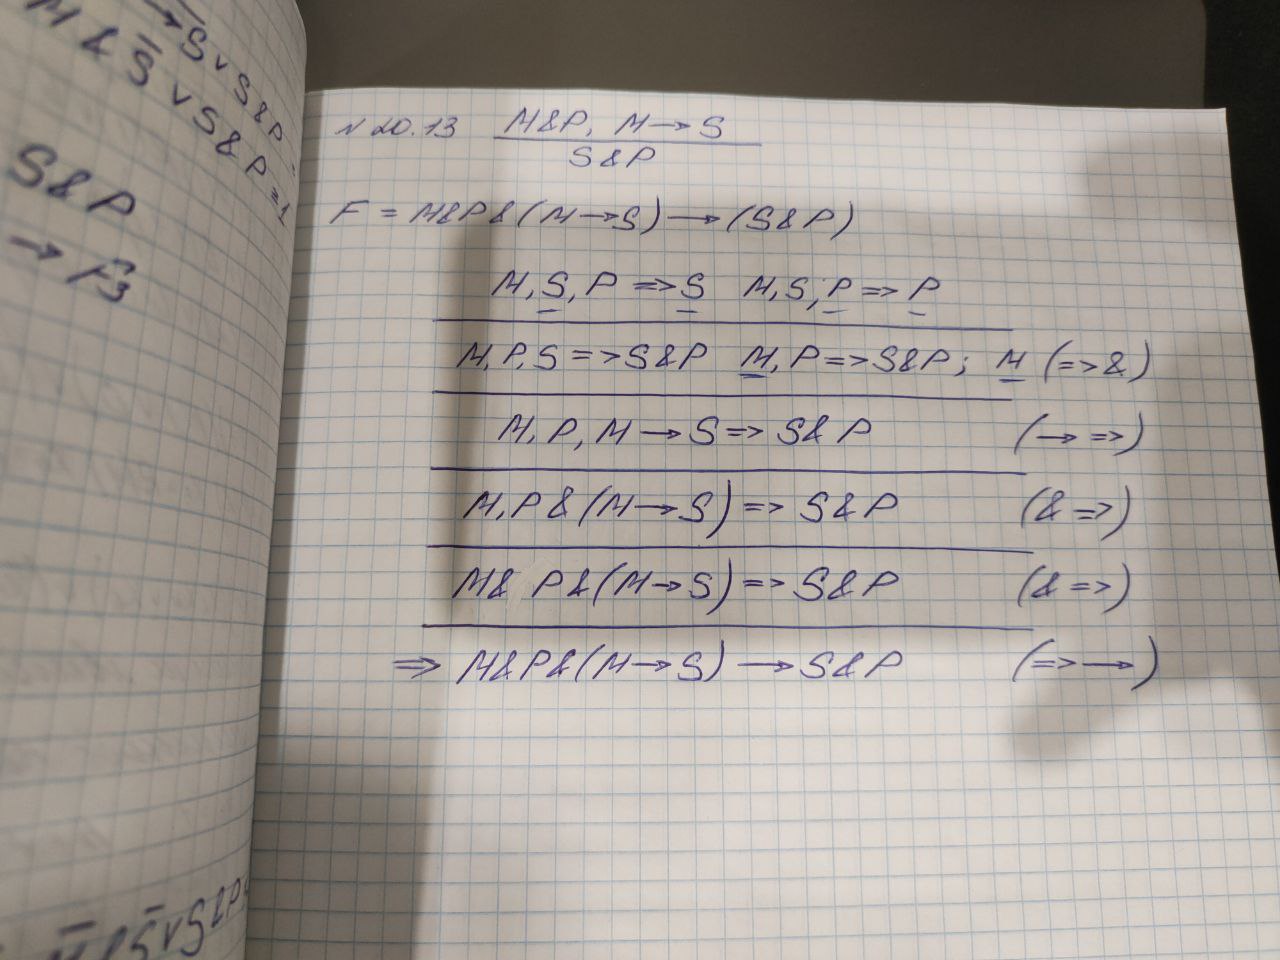 →S̄ v S&P =
M & S̄ v S&P=1
S&P
→ F₃
M̄ & S̄ v S&P
N 20.13 M&P, M→S
S&P
F = M&P&(M→S)→(S&P)
M, S, P => S M, S, P => P
M, P, S => S&P M, P => S&P; M (=> &)
M, P, M→S => S&P (→ =>)
M, P&(M→S) => S&P (& =>)
M& P&(M→S) => S&P (& =>)
=> M&P&(M→S) → S&P (=> →)